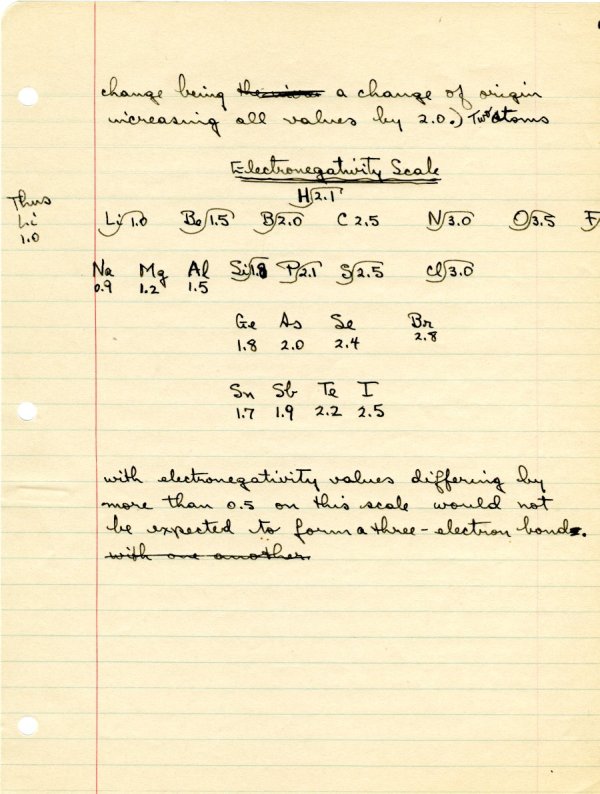 change being a change of origin
increasing all values by 2.0.) Two atoms
Electronegativity Scale
H 2.1
Thus
Li
1.0
Li 1.0 Be 1.5 B 2.0 C 2.5 N 3.0 O 3.5 F
Na Mg Al Si 1.8 P 2.1 S 2.5 Cl 3.0
0.9 1.2 1.5
Ge As Se Br
1.8 2.0 2.4 2.8
Sn Sb Te I
1.7 1.9 2.2 2.5
with electronegativity values differing by
more than 0.5 on this scale would not
be expected to form a three-electron bond.
with one another.